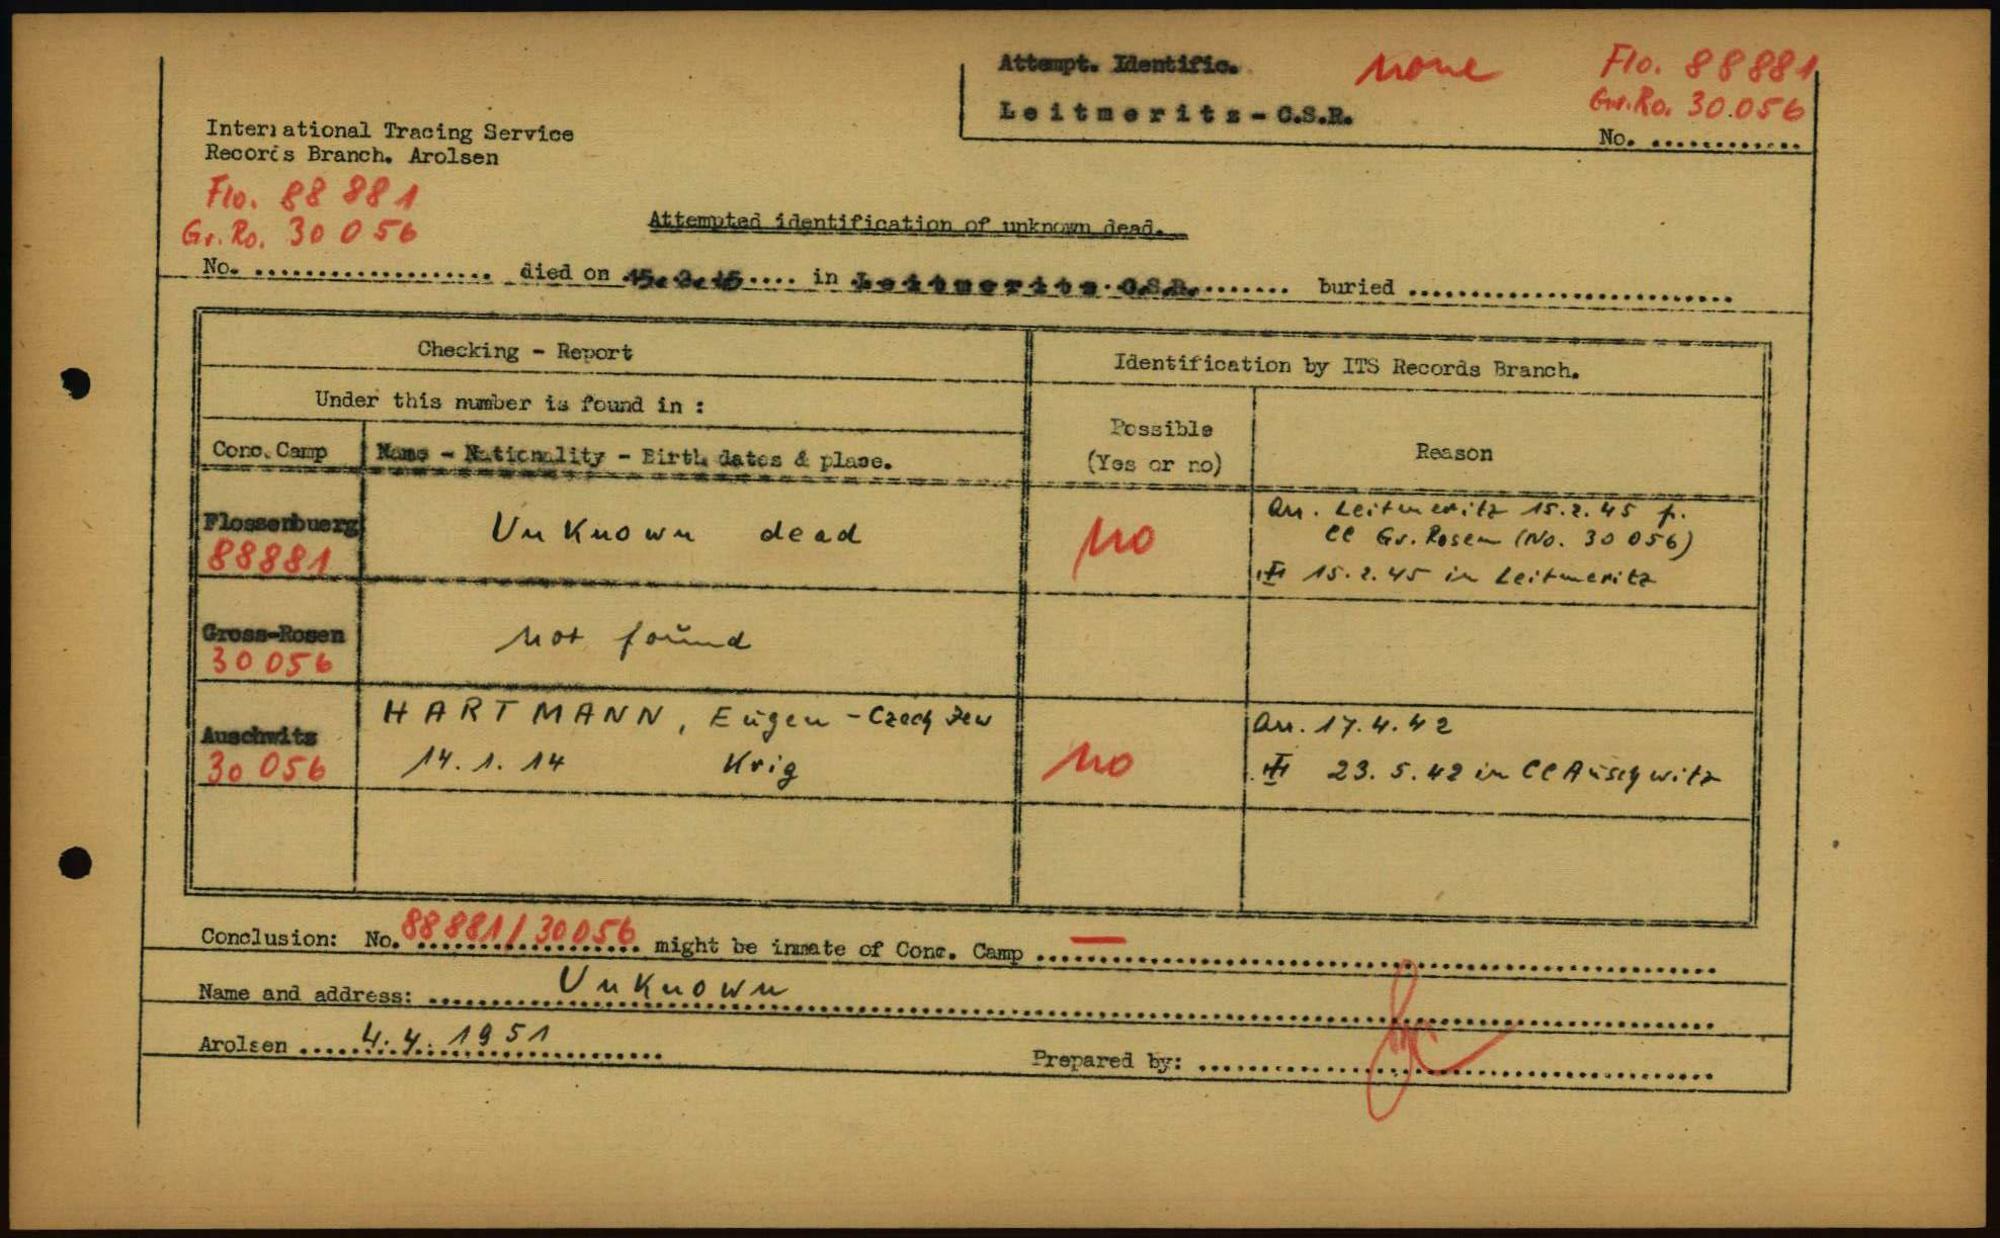 Attempt. Identific. none Flo. 88881
Leitmeritz-C.S.R. Gr.Ro. 30.056
No. ............
International Tracing Service
Records Branch. Arolsen
Flo. 88 881
Gr. Ro. 30 056
Attempted identification of unknown dead.
No. .................... died on 15.2.45.... in Leitmeritz C.S.R. ........ buried ...........................
Checking - Report
Identification by ITS Records Branch.
Under this number is found in :
Conc. Camp Name - Nationality - Birth dates & place. Possible (Yes or no) Reason
Flossenbuerg 88881 UnKnown dead no Arr. Leitmeritz 15.2.45 f.
CC Gr. Rosen (No. 30 056)
15.2.45 in Leitmeritz
Gross-Rosen 30 056 not found
Auschwitz 30 056 HARTMANN, Eugen - Czech Jew no Arr. 17.4.42
14.1.14 Krig 23.5.42 in CC Auschwitz
Conclusion: No. 88881/30056 might be inmate of Conc. Camp — ..............................
Name and address: UnKnown
Arolsen 4.4.1951
Prepared by: ..............................